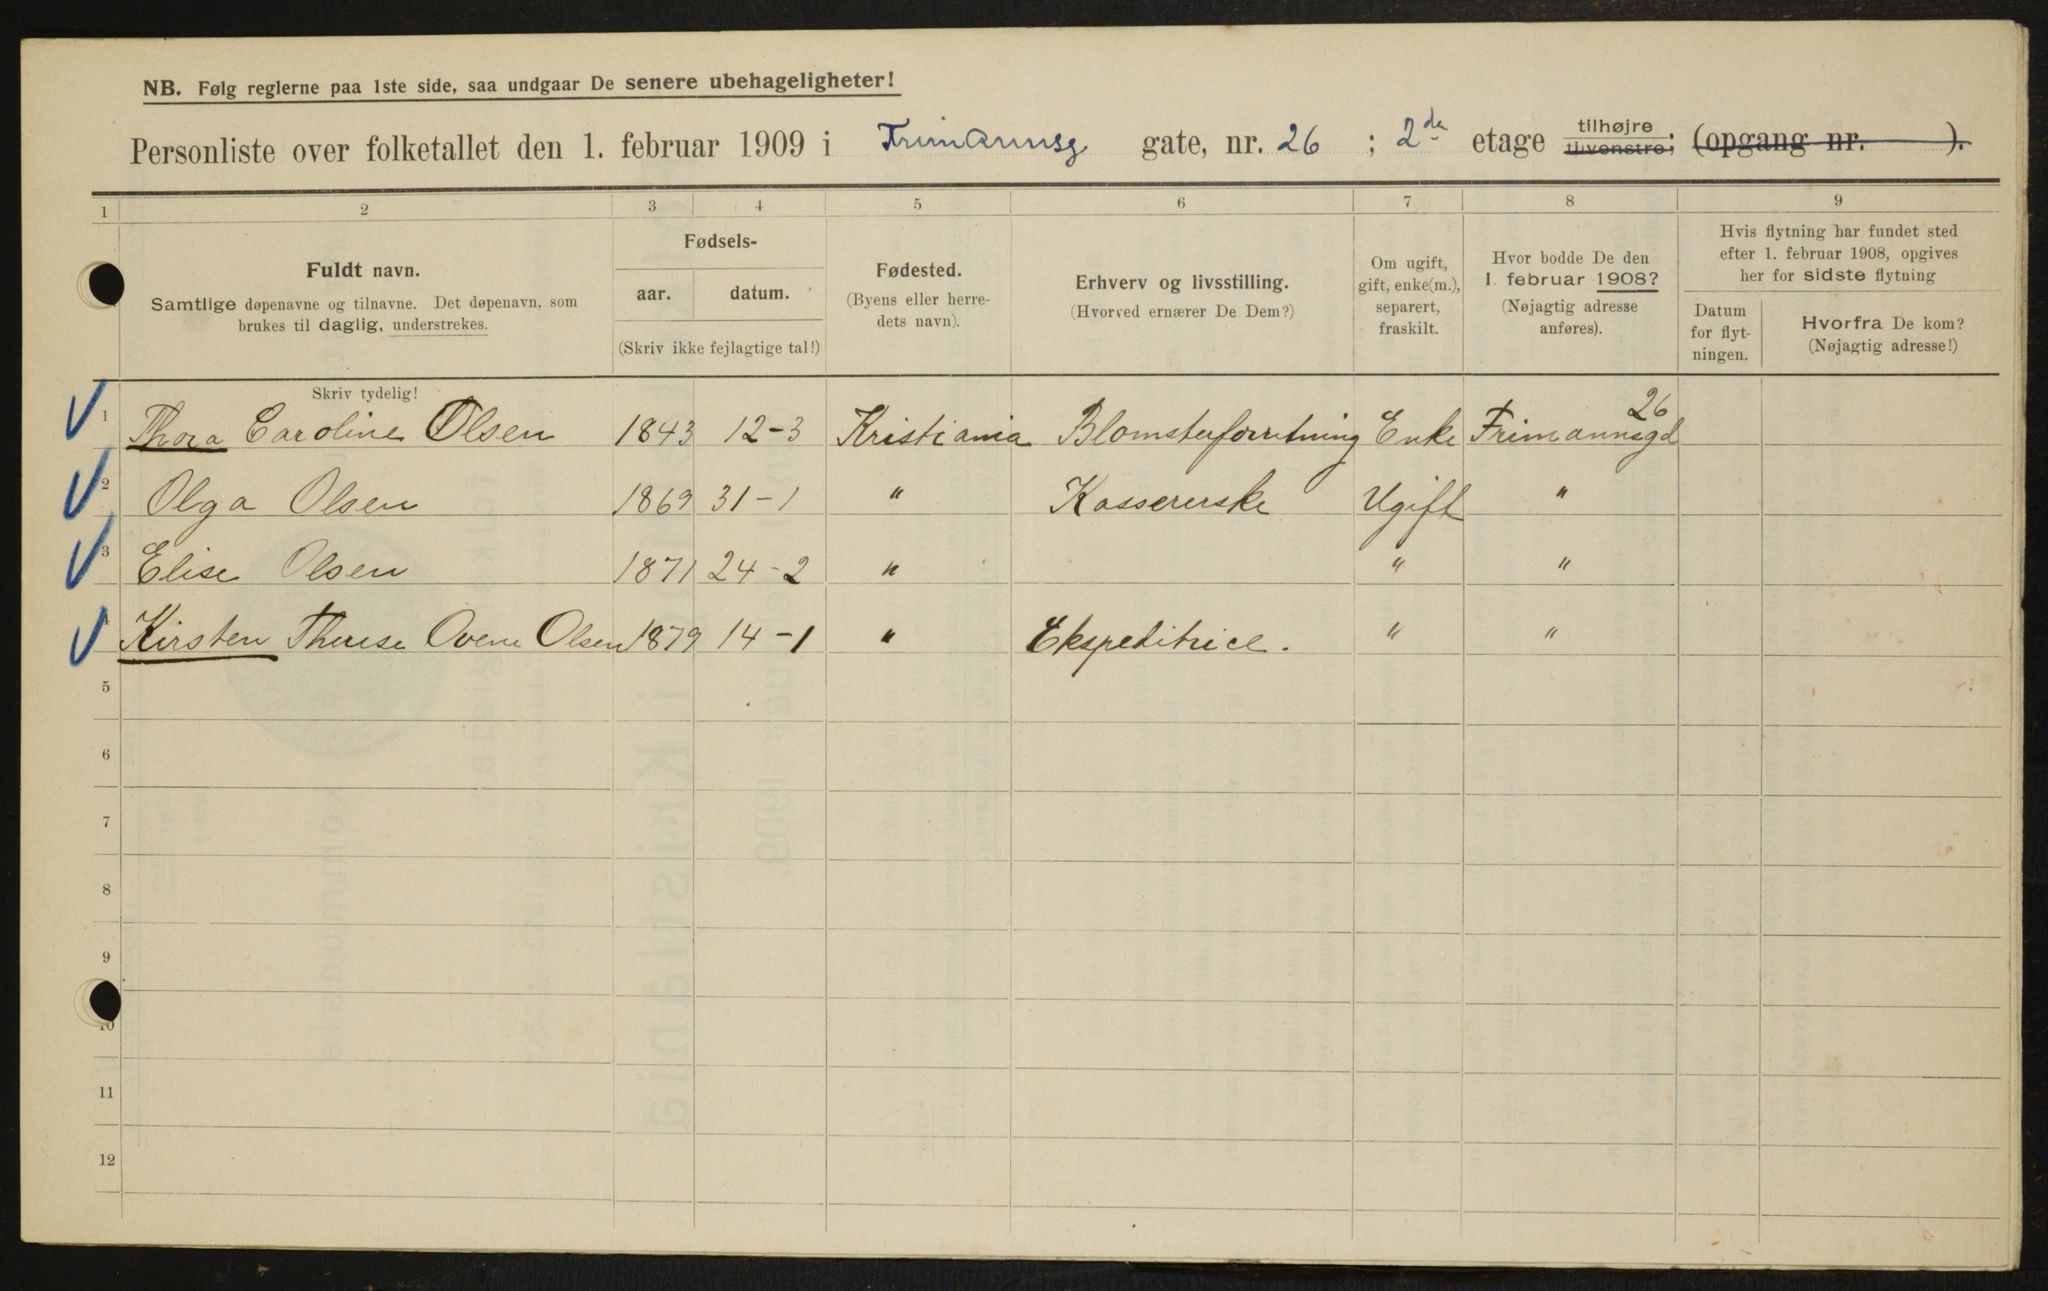 NB. Følg reglerne paa 1ste side, saa undgaar De senere ubehageligheter!
Personliste over folketallet den 1. februar 1909 i Frimannsg gate, nr. 26 ; 2de etage tilhøjre tilvenstre; (opgang nr. ).
1 2 3 4 5 6 7 8 9
Fuldt navn.
Samtlige døpenavne og tilnavne. Det døpenavn, som
brukes til daglig, understrekes.
Skriv tydelig!
Fødsels-
aar. datum.
(Skriv ikke fejlagtige tal!)
Fødested.
(Byens eller herre-
dets navn).
Erhverv og livsstilling.
(Hvorved ernærer De Dem?)
Om ugift,
gift, enke(m.),
separert,
fraskilt.
Hvor bodde De den
1. februar 1908?
(Nøjagtig adresse
anføres).
Hvis flytning har fundet sted
efter 1. februar 1908, opgives
her for sidste flytning
Datum
for flyt-
ningen.
Hvorfra De kom?
(Nøjagtig adresse!)
1 Thora Caroline Olsen 1843 12-3 Kristiania Blomsterforretning Enke Frimannsgd 26
2 Olga Olsen 1869 31-1 " Kassererske Ugift "
3 Elise Olsen 1871 24-2 " " "
4 Kirsten Therese Ovene Olsen 1879 14-1 " Ekspeditrice. " "
5
6
7
8
9
10
11
12